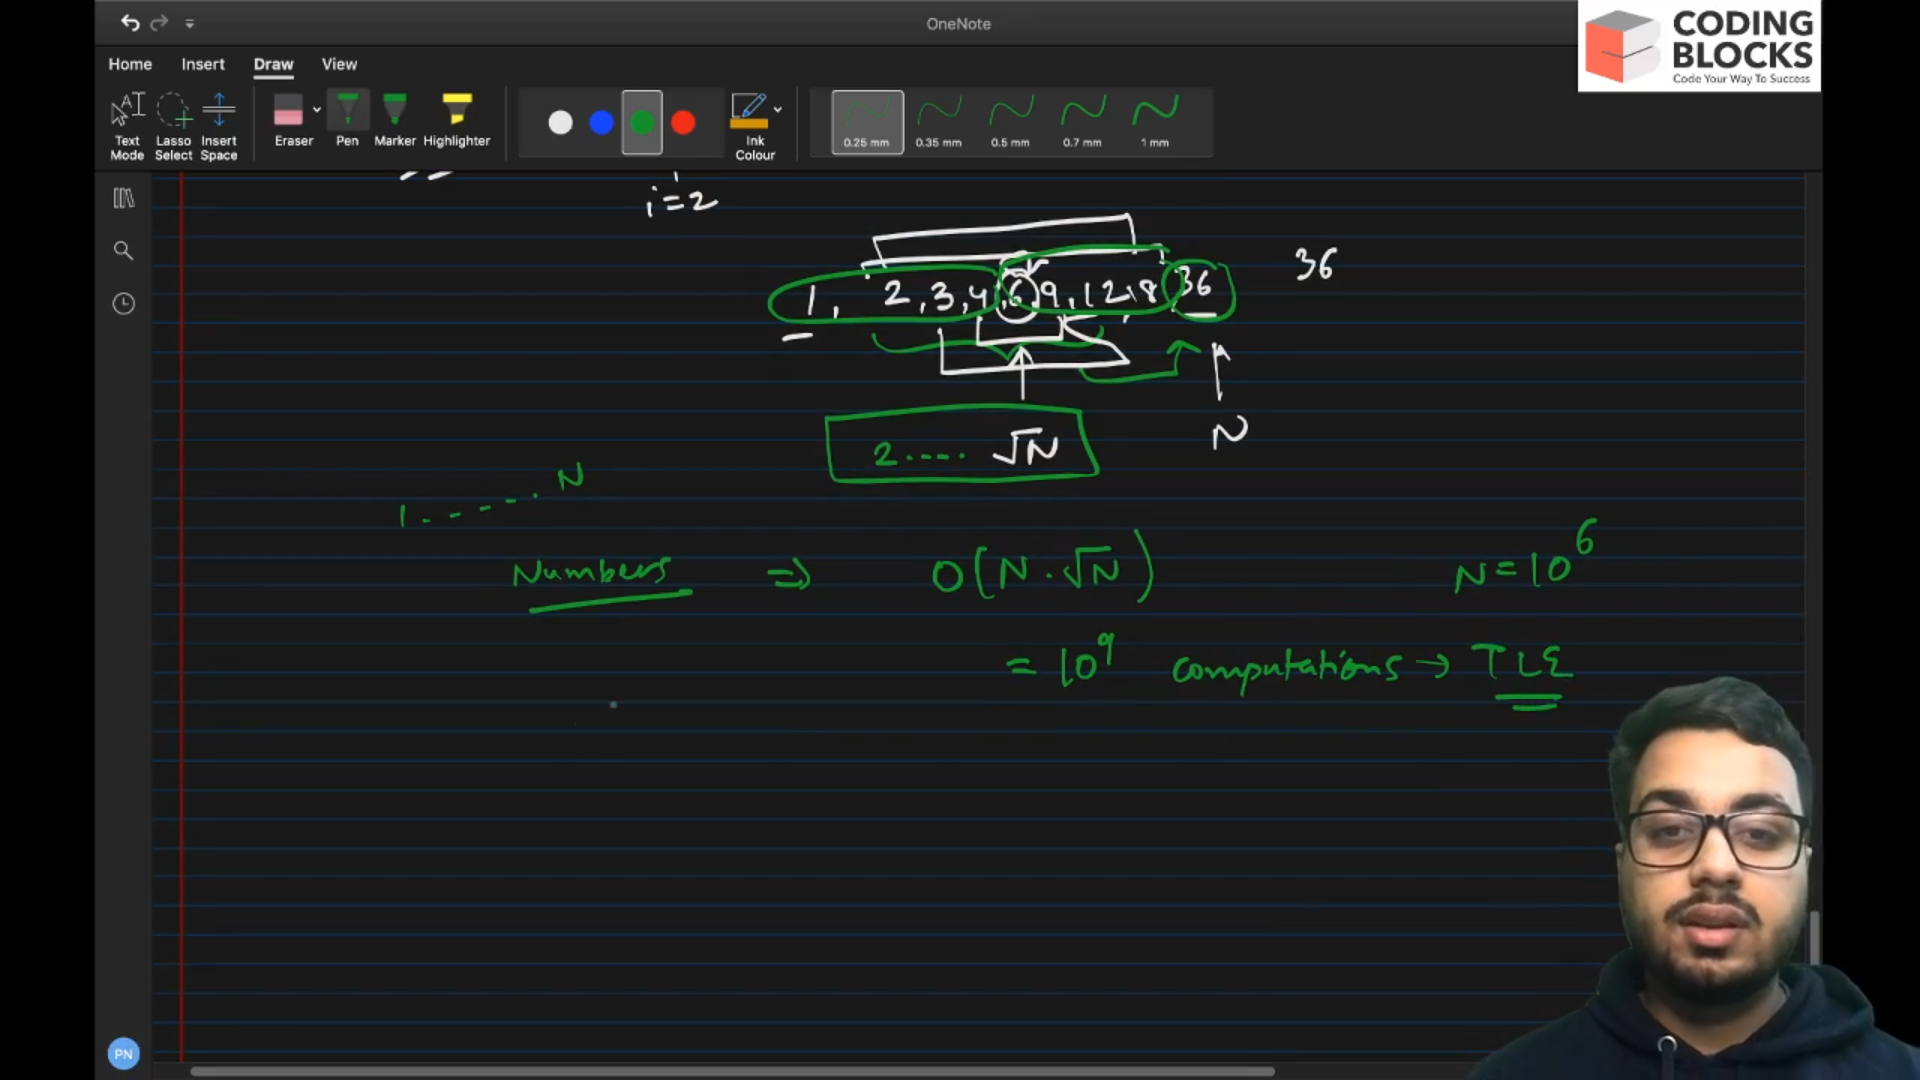 OneNote
CODING
BLOCKS
Code Your Way To Success
Home Insert Draw View
Text Mode
Lasso Select
Insert Space
Eraser
Pen
Marker
Highlighter
Ink Colour
0.25 mm 0.35 mm 0.5 mm 0.7 mm 1 mm
i=2
36
1, 2,3,4,6,9,12,18 36
N
2..... √N
1. - - - - . N
Numbers ⇒ O(N.√N) N=10^6
= 10^9 computations → TLE
PN